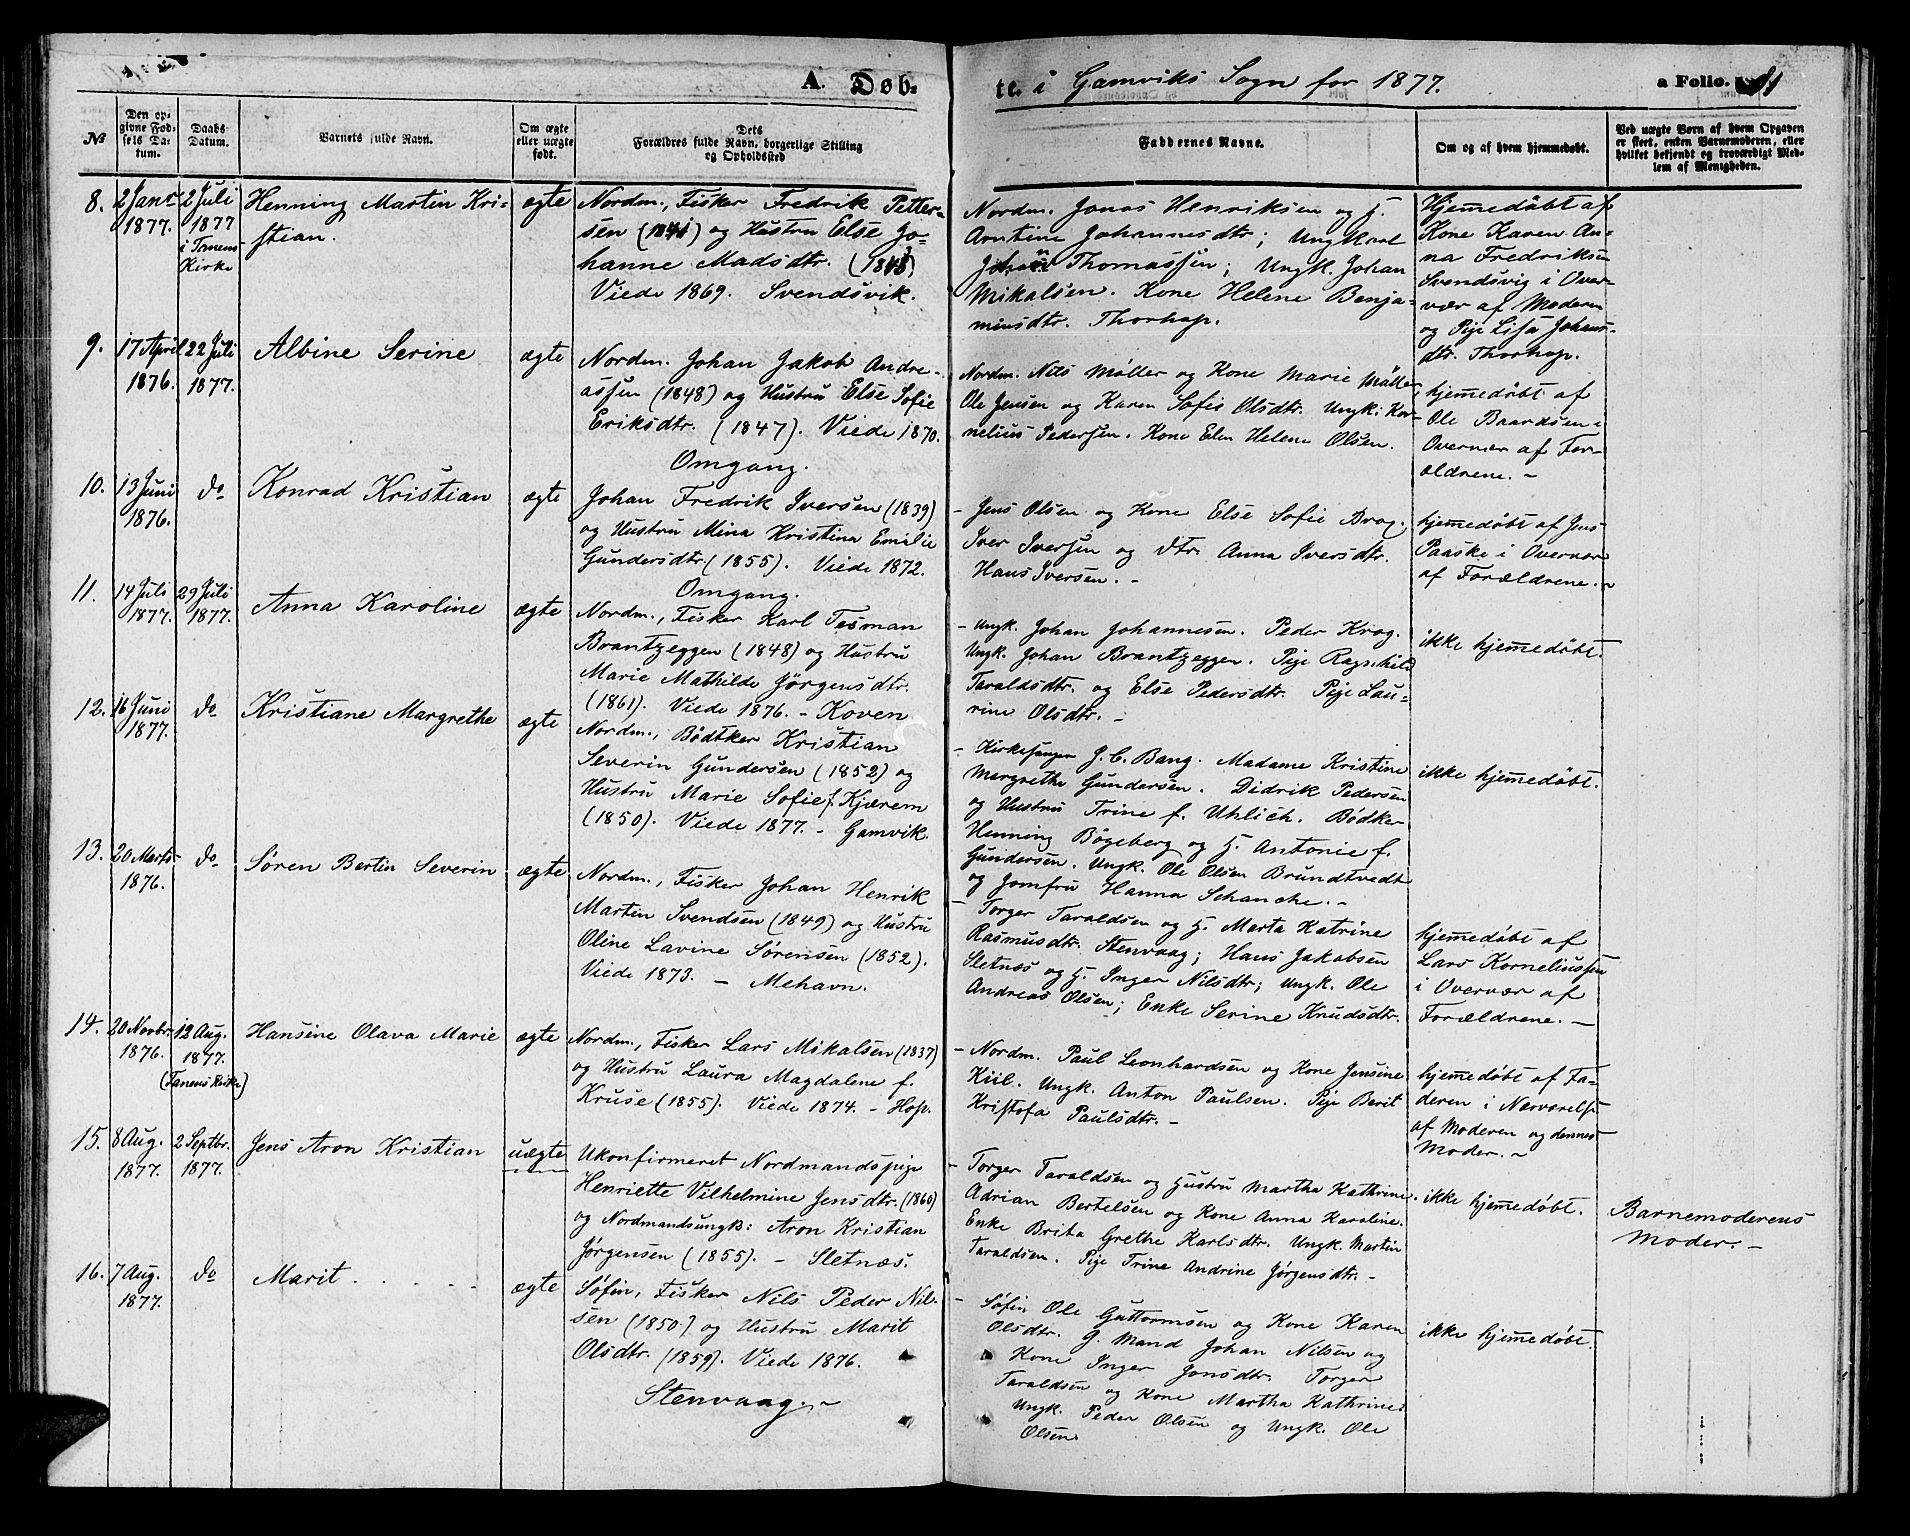 A. Døb-
te i Gamviks Sogn for 1877.
a Folio.
№
Den op-
givne Fød-
sels Da-
tum.
Daabs
Datum.
Barnets fulde Navn.
Om ægte
eller uægte
født.
Dets
Forældres fulde Navn, borgerlige Stilling
og Opholdssted
Faddernes Navne.
Om og af hvem hjemmedøbt.
Ved uægte Børn af hvem Opgaven
er skeet, enten Barnemoderen, eller
hvilket bekjendt og troværdigt Med-
lem af Menigheden.
8.
2 Janr
1877.
2 Juli
1877
i Tanens
Kirke
Henning Martin Kri-
stian.
ægte
Nordm., Fisker Fredrik Petter-
sen (1841) og Hustru Else Jo-
hanne Madsdtr.
Viede 1869. Svendsvik.
Nordm. Jonas Henriksen og H.
Arntine Johannesdtr; Ungkarl
Thomassen; Ungk. Johan
Mikalsen. Kone Helene Benja-
minsdtr. Thorhop.
Hjemedøbt af
Kone Karen An-
na Fredriksen
Svendsvig i Over-
vær af Moderen
og Pige Lisa Johans-
dtr. Thorhop.
9.
17 April
1876.
22 Juli
1877.
Albine Serine
ægte
Nordm. Johan Jakob Andre-
assen (1848) og Hustru Else Sofie
Eriksdtr. (1847). Viede 1870.
Omgang.
Nordm. Nils Møller og Kone Marie Møller,
Ole Jensen og Karen Sofie Olsdtr. Ungk: Kor-
nelius Pedersen. Kone Elen Helene Olsen.
hjemedøbt af
Ole Baardsen i
Overvær af For-
ældrene. –
10.
13 Juni
1876.
do
Konrad Kristian
ægte
Johan Fredrik Iversen (1839)
og Hustru Mina Kristina Emilie
Gundersdtr. (1855). Viede 1872.
Omgang.
- Jens Olsen og Kone Else Sofie Brog.
Iver Iversen og dtr. Anna Iversdtr.
Hans Iversen. –
hjemedøbt af Jens
Paaske i Overvær
af Forældrene. –
11.
14 Juli
1877.
29 Juli
1877.
Anna Karoline
ægte
Nordm., Fisker Karl Tesman
Brantzeggen (1848) og Hustru
Marie Mathilde Jørgensdtr.
(1861). Viede 1876. – Koven.
- Ungk. Johan Johannesen. Peder Krog.
Ungk. Johan Brantzeggen. Pige Ragnhild
Taraldsdtr. og Else Pedersdtr. Pige Lau-
rine Olsdtr. –
ikke hjemedøbt.
12.
16 Juni
1877.
do
Kristiane Margrethe
ægte
Nordm., Bødtker Kristian
Severin Gundersen (1852) og
Hustru Marie Sofie f. Kjærem
(1850). Viede 1877. – Gamvik.
- Kirkesanger J. C. Bang. Madame Kristine
Margrethe Gundersen. Didrik Pedersen
og Hustru Trine f. Uhlich. Bødker
Henning Bøgeberg og H. Antonie f.
Gundersen. Ungk. Ole Olsen Brundtvedt
og Jomfru Hanna Schanche. –
ikke hjemedøbt.
13.
20 Marts
1876.
do
Søren Bertin Severin
ægte
Nordm., Fisker Johan Henrik
Martin Svendsen (1849) og Hustru
Oline Lavine Sørensen (1852).
Viede 1873. – Mehavn.
- Torger Taraldsen og H. Marta Katrine
Rasmusdtr. Stenvaag; Hans Jakobsen
Sletnæs og H. Inger Nilsdtr; Ungk. Ole
Andreas Olsen; Enke Serine Knudsdtr.
hjemedøbt af
Lars Korneliussen
i Overvær af
Forældrene. –
14.
20 Novbr.
1876.
12 Aug.
1877.
(Tanens Kirke)
Hansine Olava Marie
ægte
Nordm., Fisker Lars Mikalsen (1837)
og Hustru Laura Magdalene f.
Kruse (1855). Viede 1874. – Hop.
- Nordm. Paul Leonhardsen og Kone Jensine
Kiil. Ungk. Anton Paulsen. Pige Berit
Kristofa Paulsdtr. –
hjemedøbt af Fa-
deren i Nærværelse
af Moderen og dennes
Moder. –
15.
8 Aug.
1877.
2 Septbr.
1877.
Jens Aron Kristian
uægte
Ukonfirmeret Nordmandspige
Henriette Vilhelmine Jensdtr. (1860)
og Nordmandsungk: Aron Kristian
Jørgensen (1855). – Sletnæs.
- Torger Taraldsen og Hustru Martha Kathrine.
Adrian Bertelsen og Kone Anna Karoline.
Enke Brita Grethe Karlsdtr. Ungk. Martin
Taraldsen. Pige Trine Andrine Jørgensdtr. –
ikke hjemedøbt.
Barnemoderens
Moder. –
16.
7 Aug.
1877.
do
Marit . . . . .
ægte
Søfin, Fisker Nils Peder Nil-
sen (1850) og Hustru Marit
Olsdtr. (1859). Viede 1876.
Stenvaag. –
- Søfin Ole Guttormsen og Kone Karen
Olsdtr. G. Mand Johan Nilsen og
Kone Inger Jonsdtr. Torger
Taraldsen og Kone Martha Kathrine.
Ungk. Peder Olsen og Ungk. Ole
Olsen.
ikke hjemedøbt.